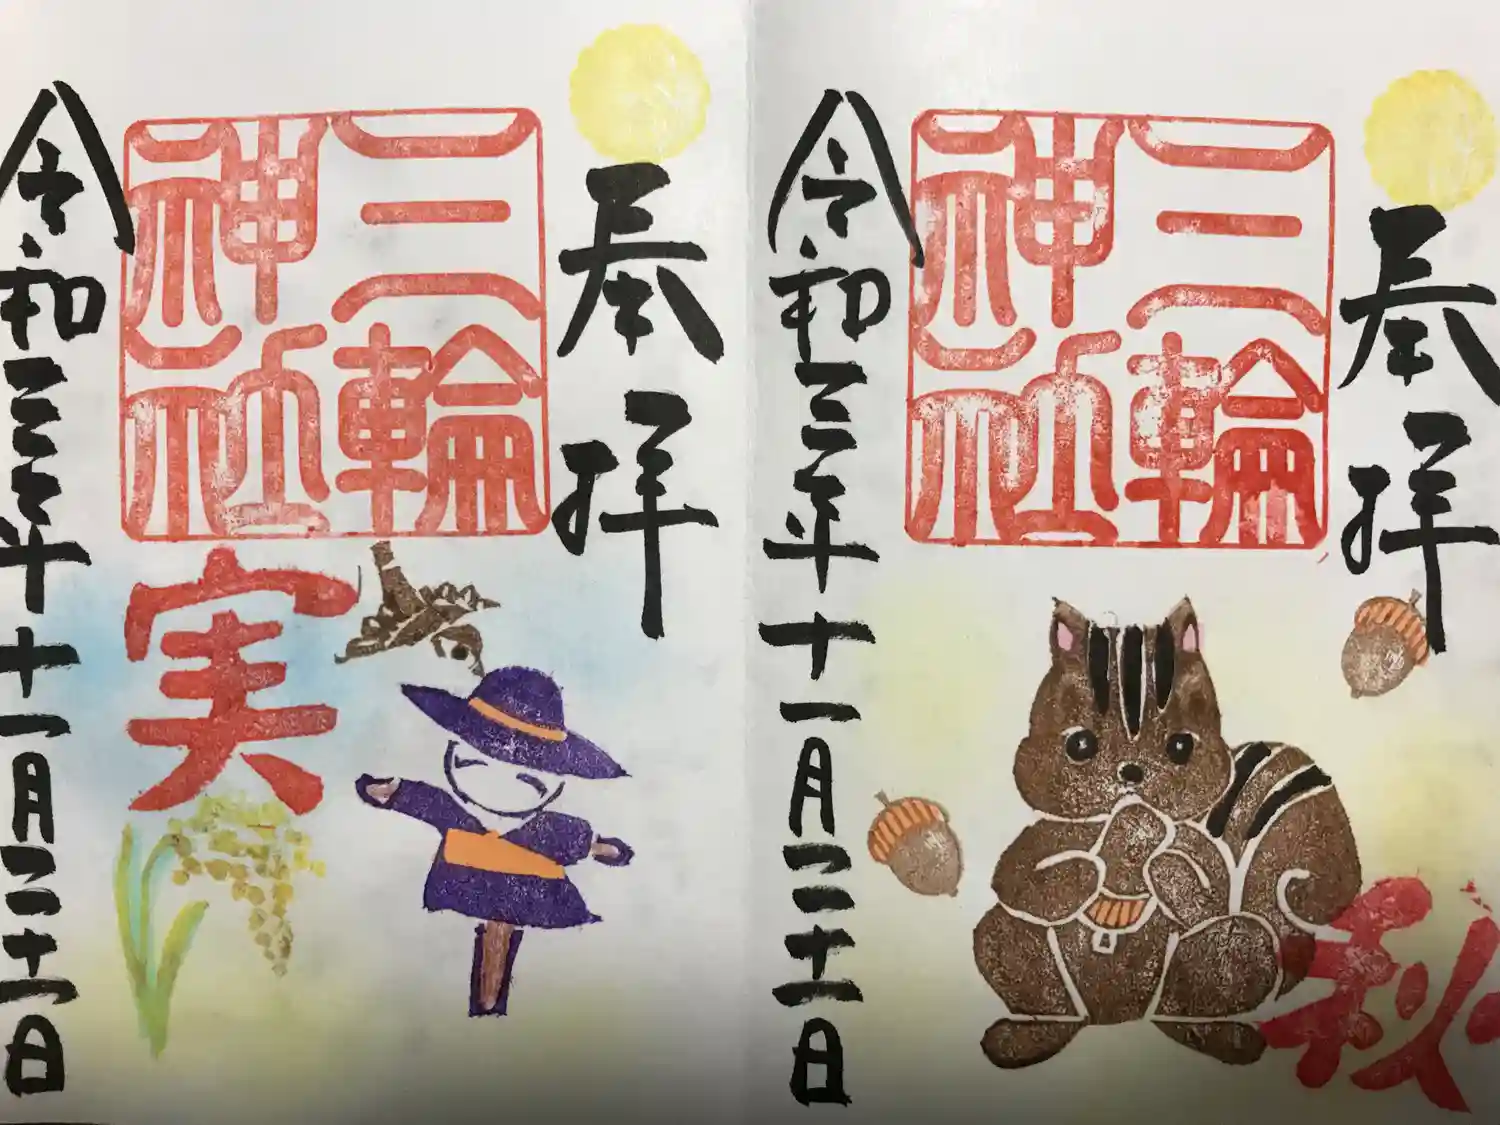 奉拝
三輪
神社
秋
令和三年十一月二十一日
奉拝
三輪
神社
実
令和三年十一月二十一日